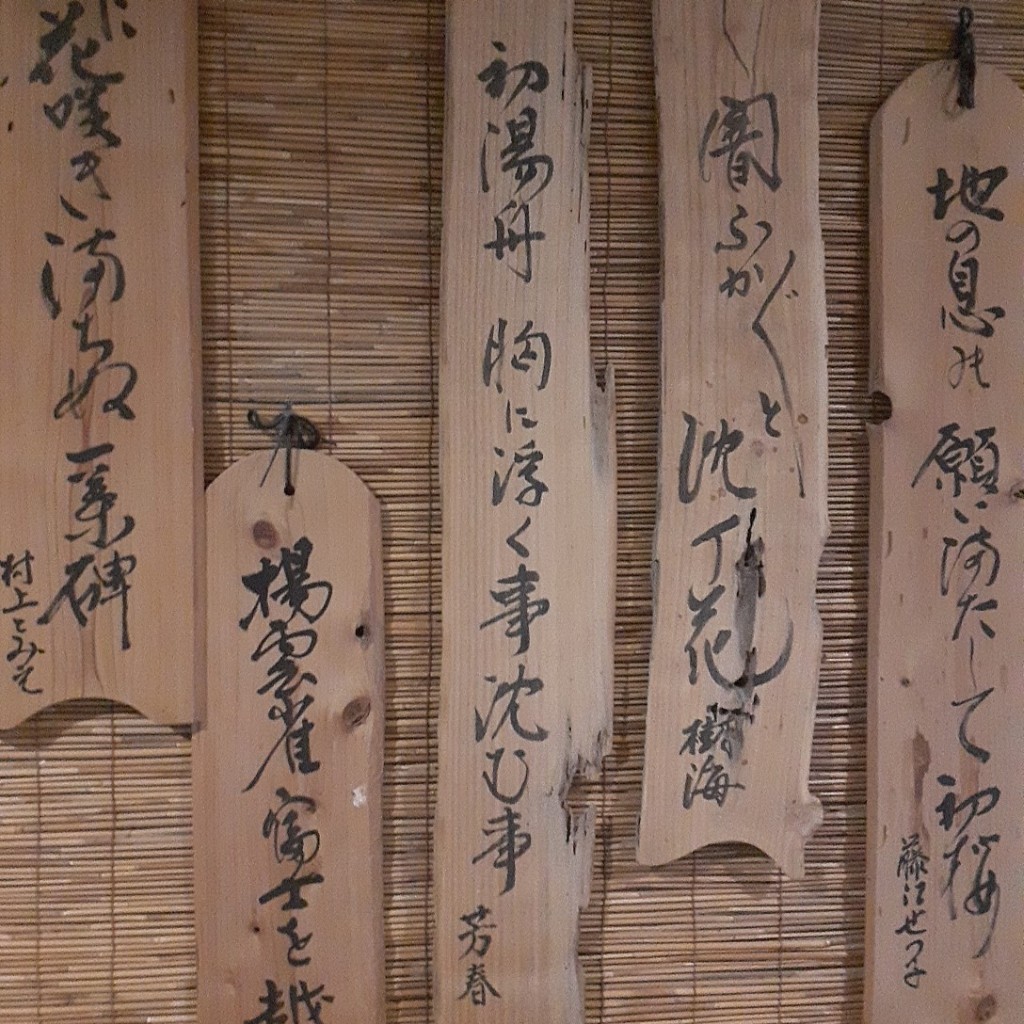 地の息の願い満たして初桜
藤江せつ子
闇ふかぐと沈丁花
樹海
初湯舟胸に浮く事沈む事
芳春
揚雲雀富士を越
花咲き満ちぬ一葉碑
村上とみえ